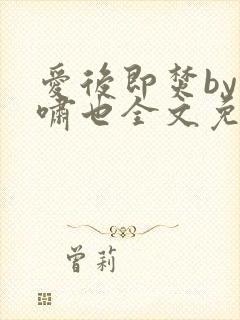 爱后即焚by
啸也全文免
曾莉